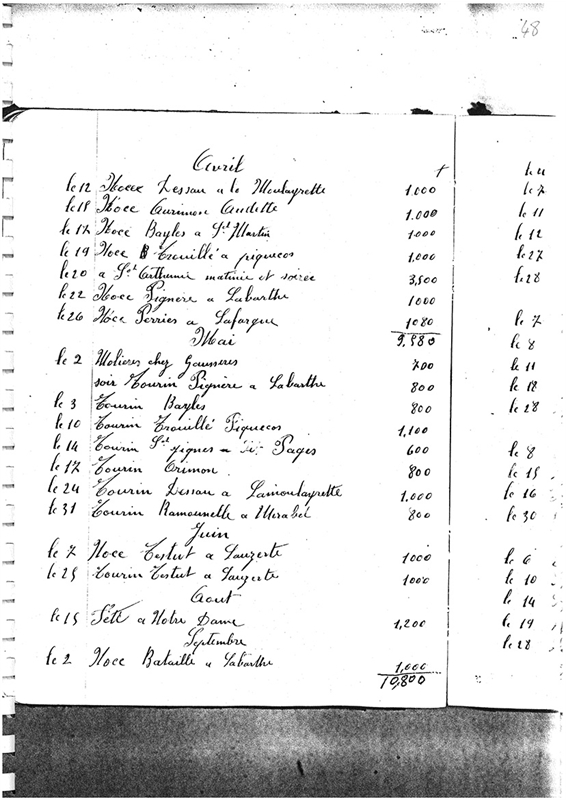 48
Avril
le 12 Noce Dessau a la Moulayrette 1.000
le 18 Noce Odette 1.000
le 17 Noce Bayles a St Martin 1000
le 19 Noce Trouillé a piquecos 1,000
le 20 a St matinée et soirée 3,500
le 22 Noce Pignère a Labarthe 1000
le 26 Noce Perries a Lafargue 1080
9,580
Mai
le 2 Molieres chez Gausseres 700
soir Tourin Pignère a Labarthe 800
le 3 Tourin Bayles 800
le 10 Tourin Trouillé Piquecos 1,100
le 14 Tourin St Pages 600
le 17 Tourin 800
le 24 Tourin Dessau a Lamoulayrette 1,000
le 31 Tourin Ramounelle a Mirabel 800
Juin
le 7 Noce Testut a Lauzerte 1000
le 25 Tourin Testut a Lauzerte 1000
Aout
le 15 Fête a Notre Dame 1,200
Septembre
le 2 Noce Bataille a Labarthe 1,000
10,800
le 4
le 7
le 11
le 12
le 27
le 28
le 7
le 8
le 11
le 18
le 28
le 8
le 15
le 16
le 30
le 6
le 10
le 14
le 19
le 28